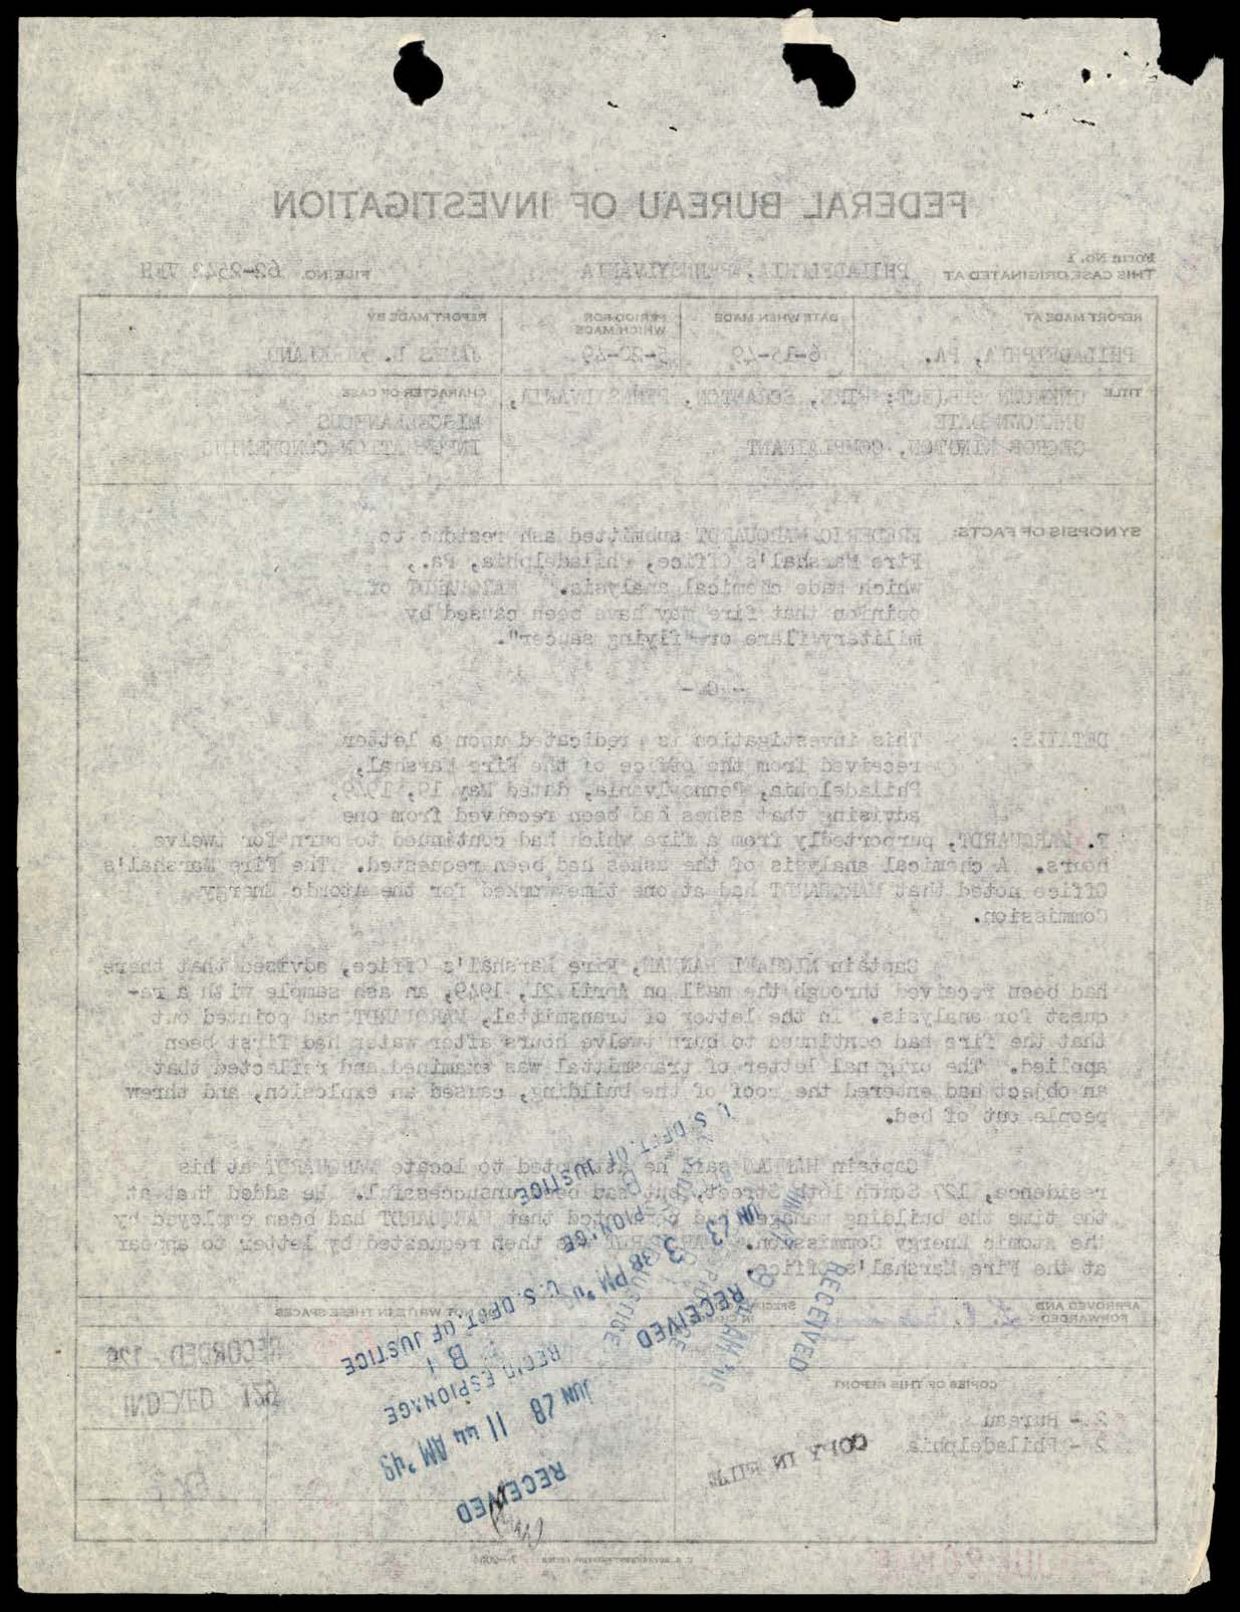 FEDERAL BUREAU OF INVESTIGATION
Form No. 1
THIS CASE ORIGINATED AT PHILADELPHIA, PENNSYLVANIA FILE NO. 62-2543
REPORT MADE AT DATE WHEN MADE PERIOD FOR WHICH MADE REPORT MADE BY
PHILADELPHIA, PA. 6-15-49 5-20-49 JAMES
TITLE CHARACTER OF CASE
UNKNOWN SUBJECT; FIRE, SCRANTON, PENNSYLVANIA,
UNKNOWN DATE MISCELLANEOUS
GEORGE COMPLAINANT INFORMATION CONCERNING
SYNOPSIS OF FACTS: FREDERIC MARQUARDT submitted ash residue to
Fire Marshal's Office, Philadelphia, Pa.,
which made chemical analysis. MARQUARDT of
opinion that fire may have been caused by
military flare or "flying saucer".
- C -
DETAILS: This investigation is predicated upon a letter
received from the office of the Fire Marshal,
Philadelphia, Pennsylvania, dated May 19, 1949,
advising that ashes had been received from one
F. MARQUARDT, purportedly from a fire which had continued to burn for twelve
hours. A chemical analysis of the ashes had been requested. The Fire Marshal's
Office noted that MARQUARDT had at one time worked for the Atomic Energy
Commission.
Captain MICHAEL HANNAN, Fire Marshal's Office, advised that there
had been received through the mail on April 21, 1949, an ash sample with a re-
quest for analysis. In the letter of transmittal, MARQUARDT had pointed out
that the fire had continued to burn twelve hours after water had first been
applied. The original letter of transmittal was examined and reflected that
an object had entered the roof of the building, caused an explosion, and threw
people out of bed.
Captain HANNAN said he attempted to locate MARQUARDT at his
residence, 127 South 16th Street, but had been unsuccessful. He added that at
the time the building manager had reported that MARQUARDT had been employed by
the Atomic Energy Commission. MARQUARDT was then requested by letter to appear
at the Fire Marshal's Office.
APPROVED AND FORWARDED: SPECIAL AGENT IN CHARGE DO NOT WRITE IN THESE SPACES
RECORDED - 126
INDEXED 126
COPIES OF THIS REPORT
2 - Bureau
2 - Philadelphia
COPY IN FILE
EX
U.S. DEPT. OF JUSTICE
ESPIONAGE
JUN 23
RECEIVED
RECEIVED
U.S. DEPT. OF JUSTICE
REC'D ESPIONAGE
JUN 28 11 44 AM '49
RECEIVED